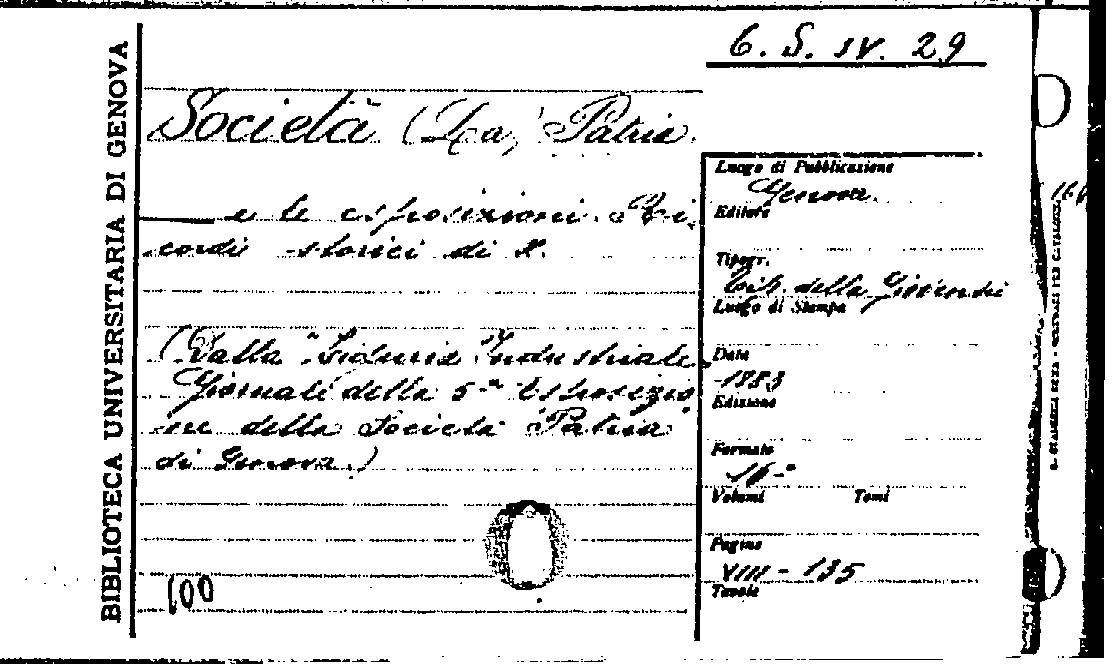 6. S. IV. 29
BIBLIOTECA UNIVERSITARIA DI GENOVA
Società (La) Patria.
e le esposizioni. Ri,
cordi storici di X.
(Dalla "Liguria Industriale„
Giornale della 5ª Esposizio
ne della Società Patria
di Genova.)
100
Luogo di Pubblicazione
Genova.
Editore
Tipogr.
Tip. della Gioventù
Luogo di Stampa
Data
1883
Edizione
Formato
16°
Volumi Tomi
Pagine
VIII - 135
Tavole